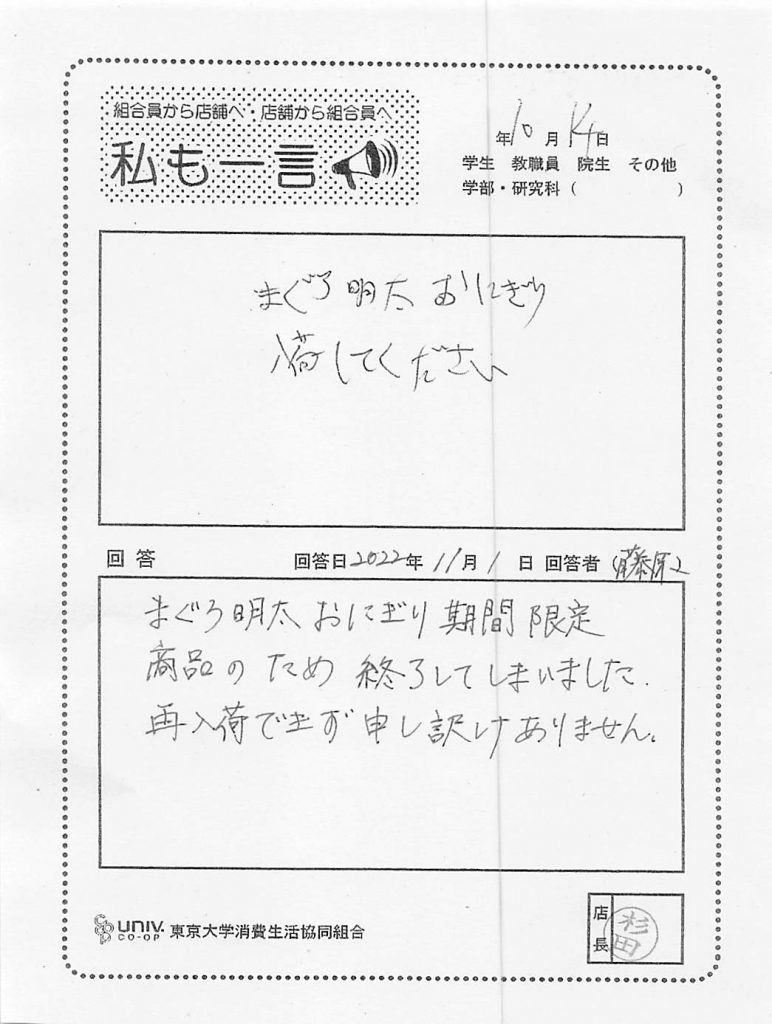 組合員から店舗へ・店舗から組合員へ
私も一言
年10月14日
学生 教職員 院生 その他
学部・研究科（ ）
まぐろ明太おにぎり
入荷してください
回答 回答日2022年11月1日 回答者 藤原
まぐろ明太おにぎり期間限定
商品のため終了してしまいました.
再入荷できず申し訳けありません。
UNIV. CO-OP 東京大学消費生活協同組合
店長 杉田